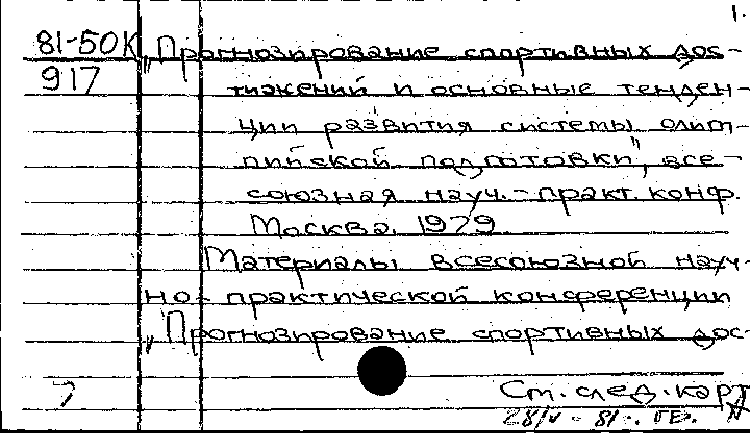 1.
81-50К „Прогнозирование спортивных дос-
917
тижений и основные тенден-
ции развития системы олим-
пийской подготовки", все-
союзная науч.-практ. конф.
Москва. 1979
Материалы всесоюзной науч-
но-практической конференции
„Прогнозирование спортивных дос-
См. след. карт
28/V-81.